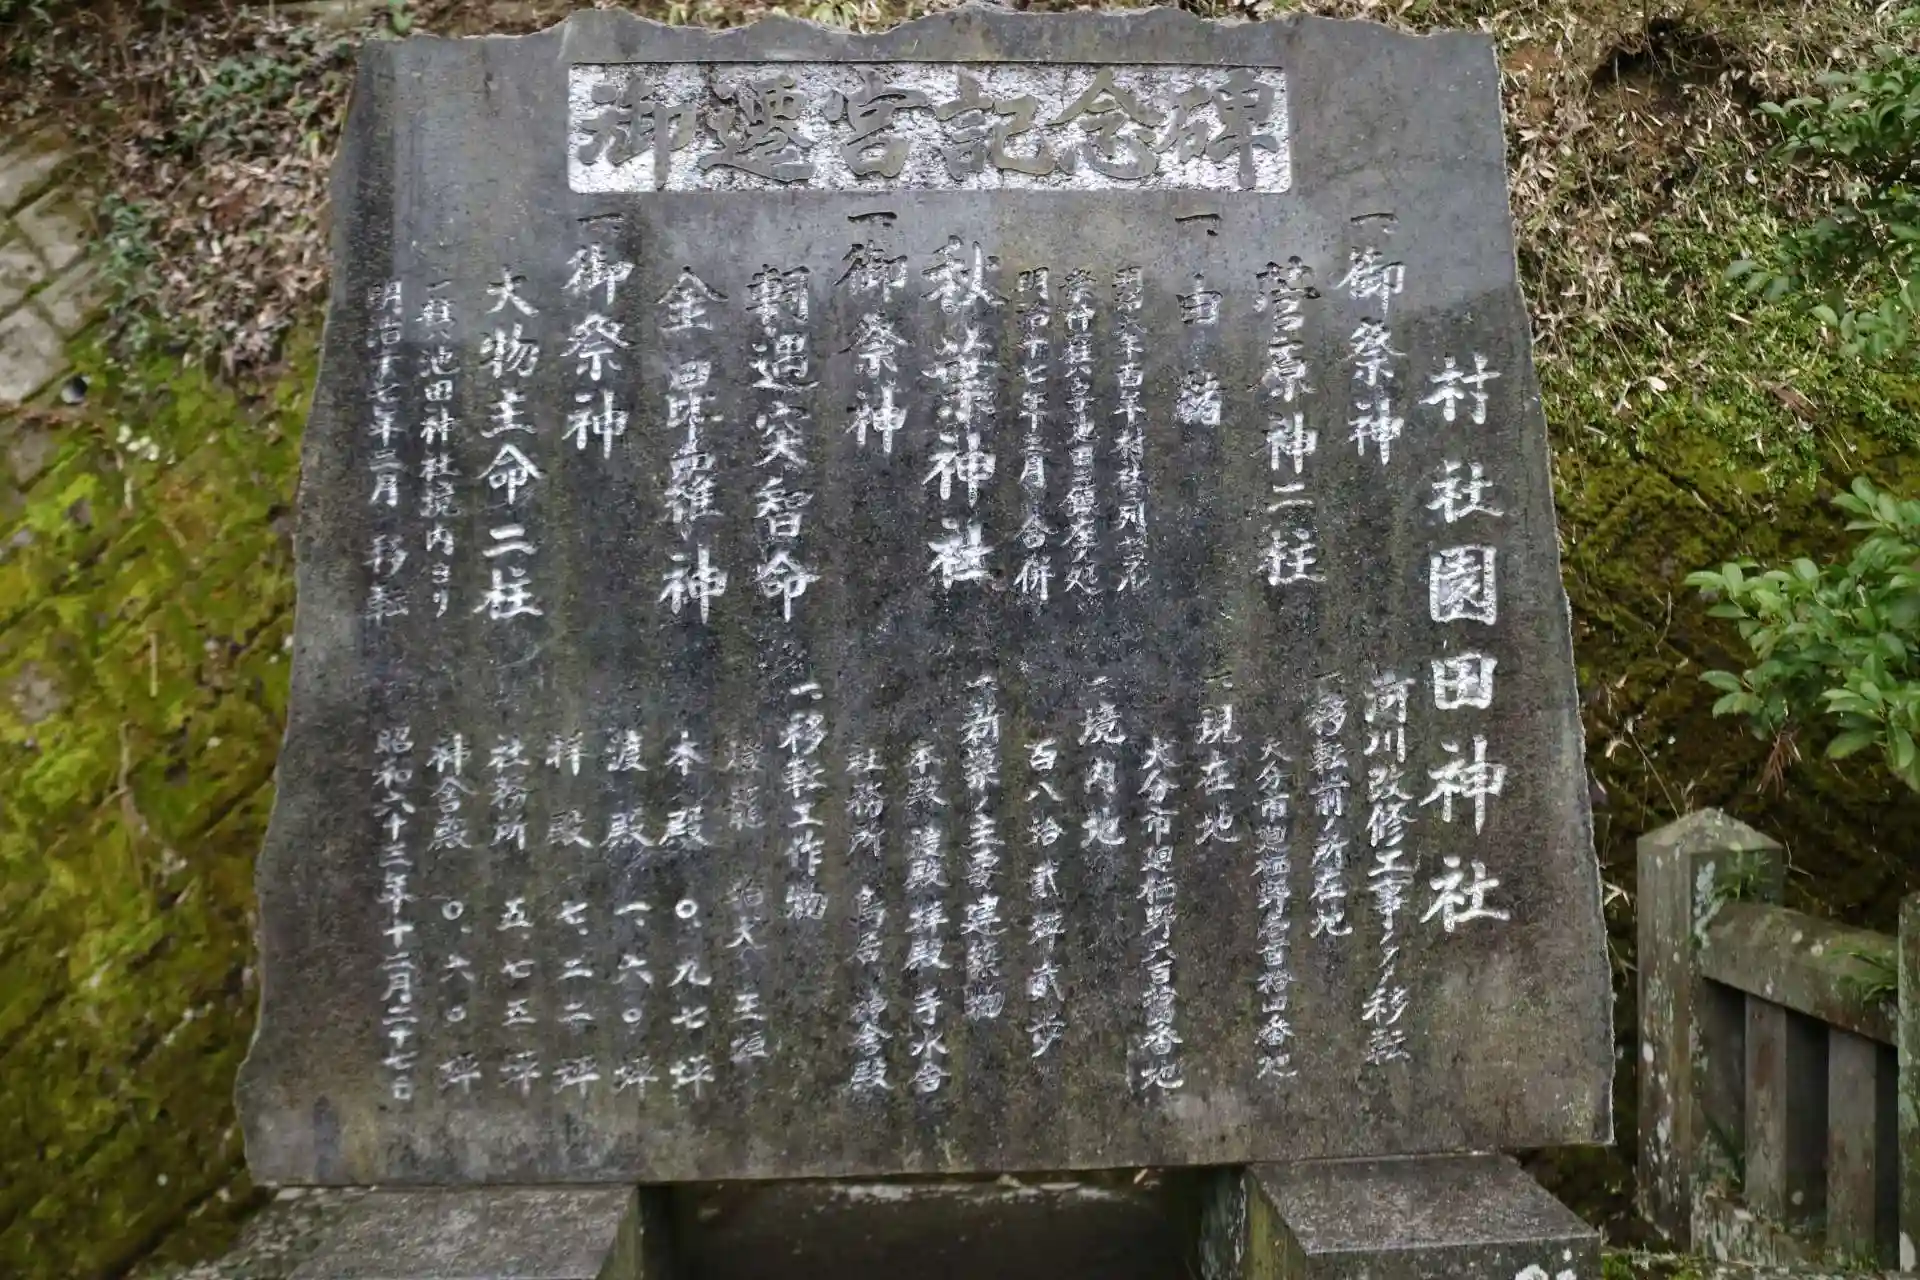 御遷宮記念碑
村社園田神社
一、御祭神
菅原神二柱
一、由緒
明治六年酉年村社ニ列せられ
鎮座ノ処
明治十七年三月合併
秋葉神社
一、御祭神
軻遇突智命
金毘羅神
一、御祭神
大物主命二柱
池田神社境内ヨリ
明治十七年三月移転
河川改修工事ノタメ移転
一、移転前ノ所在地
大分市
一、現在地
大分市
一、境内地
百八拾弐坪弐歩
一、新築ノ主要建築物
本殿 渡殿 拝殿 手水舎
社務所 鳥居 神舎殿
一、移転工作物
燈籠 狛犬 玉垣
本殿 〇.九七坪
渡殿 一.六〇坪
拝殿 七.二二坪
社務所 五.七五坪
神舎殿 〇.六〇坪
昭和六十三年十二月二十七日